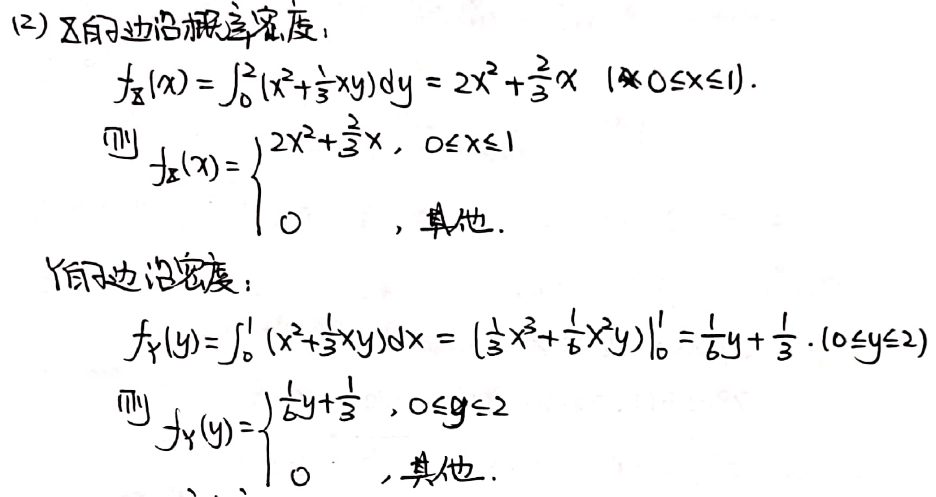 (2) X的边沿概率密度:
f_X(x) = ∫₀²(x²+⅓xy)dy = 2x²+⅔x (0≤x≤1).
则 f_X(x) = { 2x²+⅔x, 0≤x≤1
0 , 其他.
Y的边沿密度:
f_Y(y) = ∫₀¹(x²+⅓xy)dx = (⅓x³+⅙x²y)|₀¹ = ⅙y+⅓. (0≤y≤2)
则 f_Y(y) = { ⅙y+⅓, 0≤y≤2
0 , 其他.